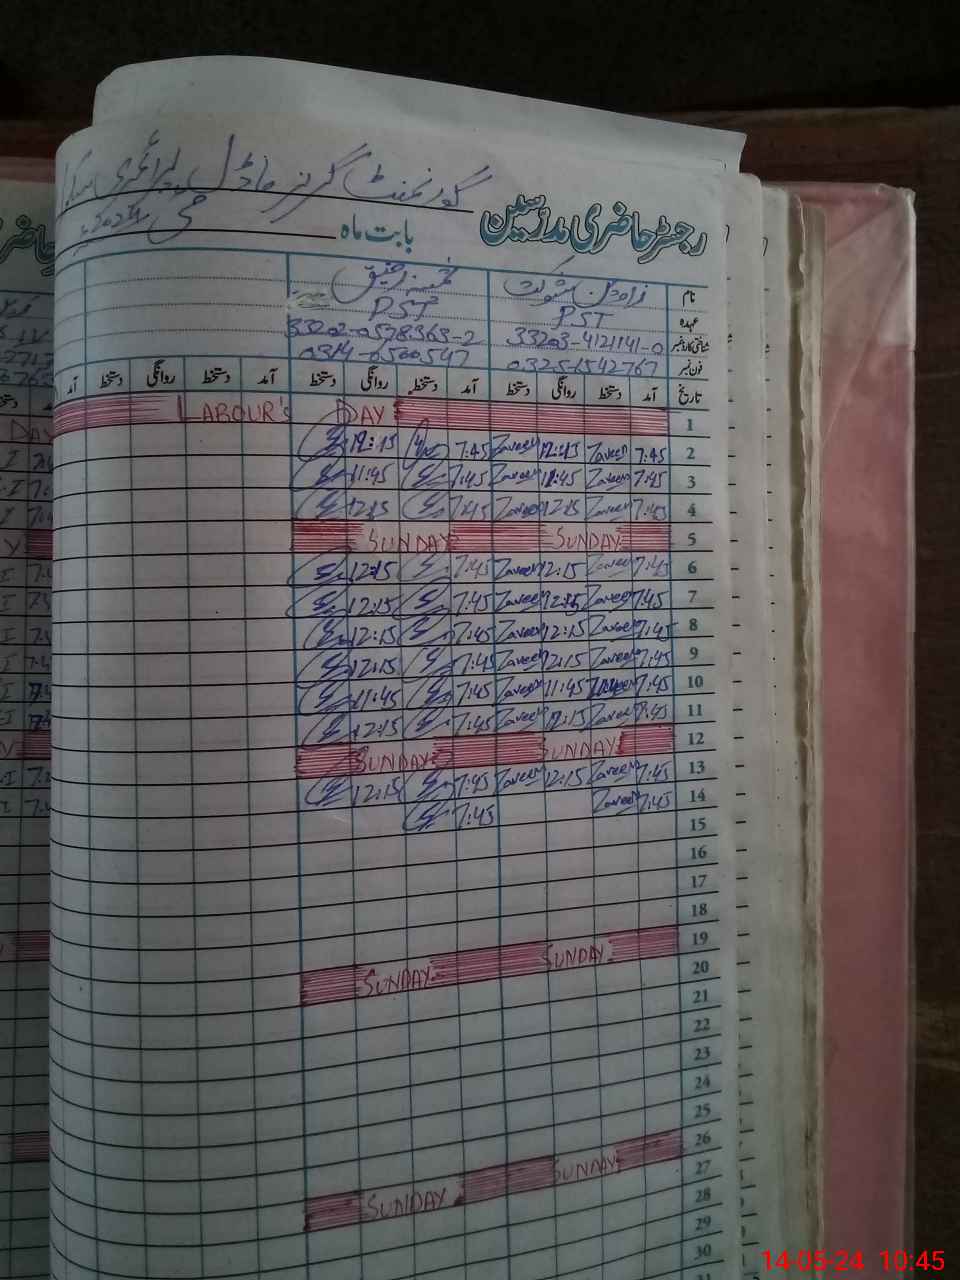 گورنمنٹ گرلز ماڈل پرائمری سکول
رجسٹر حاضری مدرسین
بابت ماہ مئی 2024ء
نام شوکت رفیق
عہدہ PST PST
شناختی کارڈ نمبر 33203-4121141-0 33202-0578363-2
فون نمبر 0325-1542767 0314-6500547
تاریخ آمد دستخط روانگی دستخط آمد دستخط روانگی دستخط آمد دستخط روانگی دستخط آمد
1 LABOUR'S DAY
2 7:45 Zareen 12:15 Zareen 7:45 12:15
3 7:45 Zareen 11:45 Zareen 7:45 11:45
4 7:45 Zareen 12:15 Zareen 7:45 12:15
5 SUNDAY SUNDAY
6 7:45 Zareen 12:15 Zareen 7:45 12:15
7 7:45 Zareen 12:15 Zareen 7:45 12:15
8 7:45 Zareen 12:15 Zareen 7:45 12:15
9 7:45 Zareen 12:15 Zareen 7:45 12:15
10 7:45 Zareen 11:45 Zareen 7:45 11:45
11 7:45 Zareen 12:15 Zareen 7:45 12:15
12 SUNDAY SUNDAY
13 7:45 Zareen 12:15 Zareen 7:45 12:15
14 7:45 Zareen 7:45
15
16
17
18
19 SUNDAY SUNDAY
20
21
22
23
24
25
26 SUNDAY SUNDAY
27
28
29
30
31
14-05-24 10:45